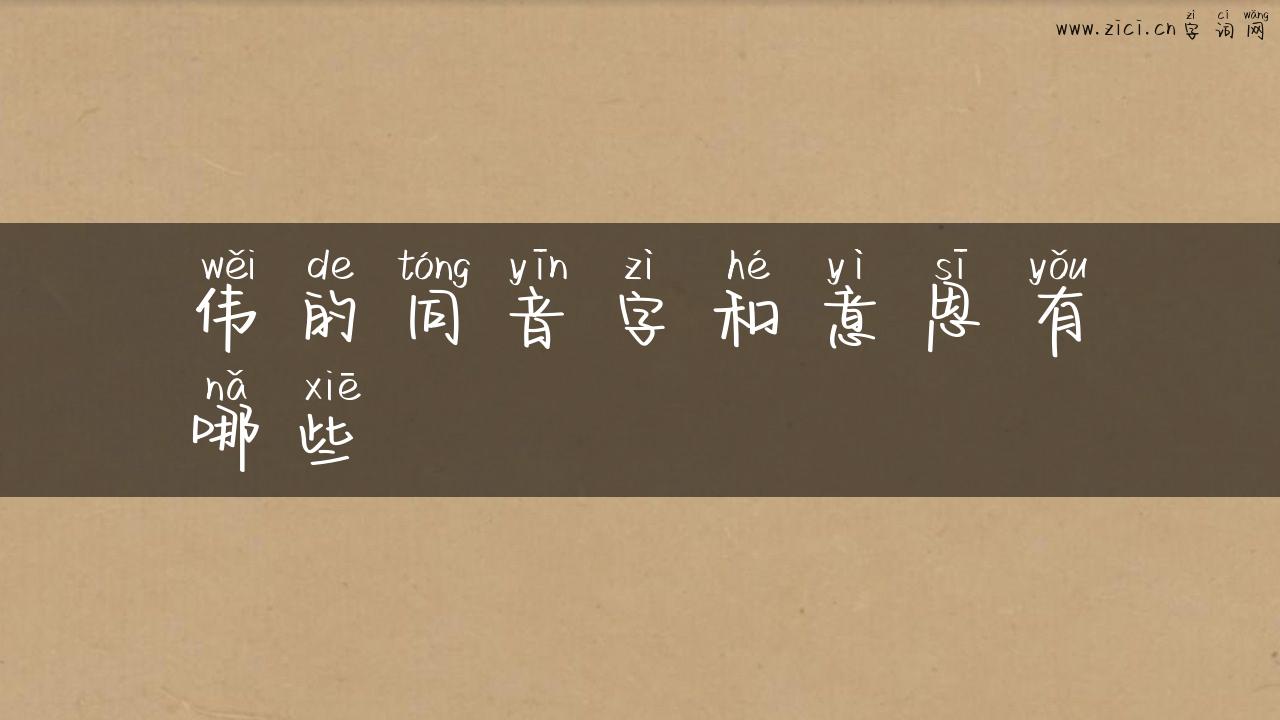 zì cí wǎng
www.zici.cn 字 词 网
wěi de tóng yīn zì hé yì sī yǒu
伟 的 同 音 字 和 意 思 有
nǎ xiē
哪 些